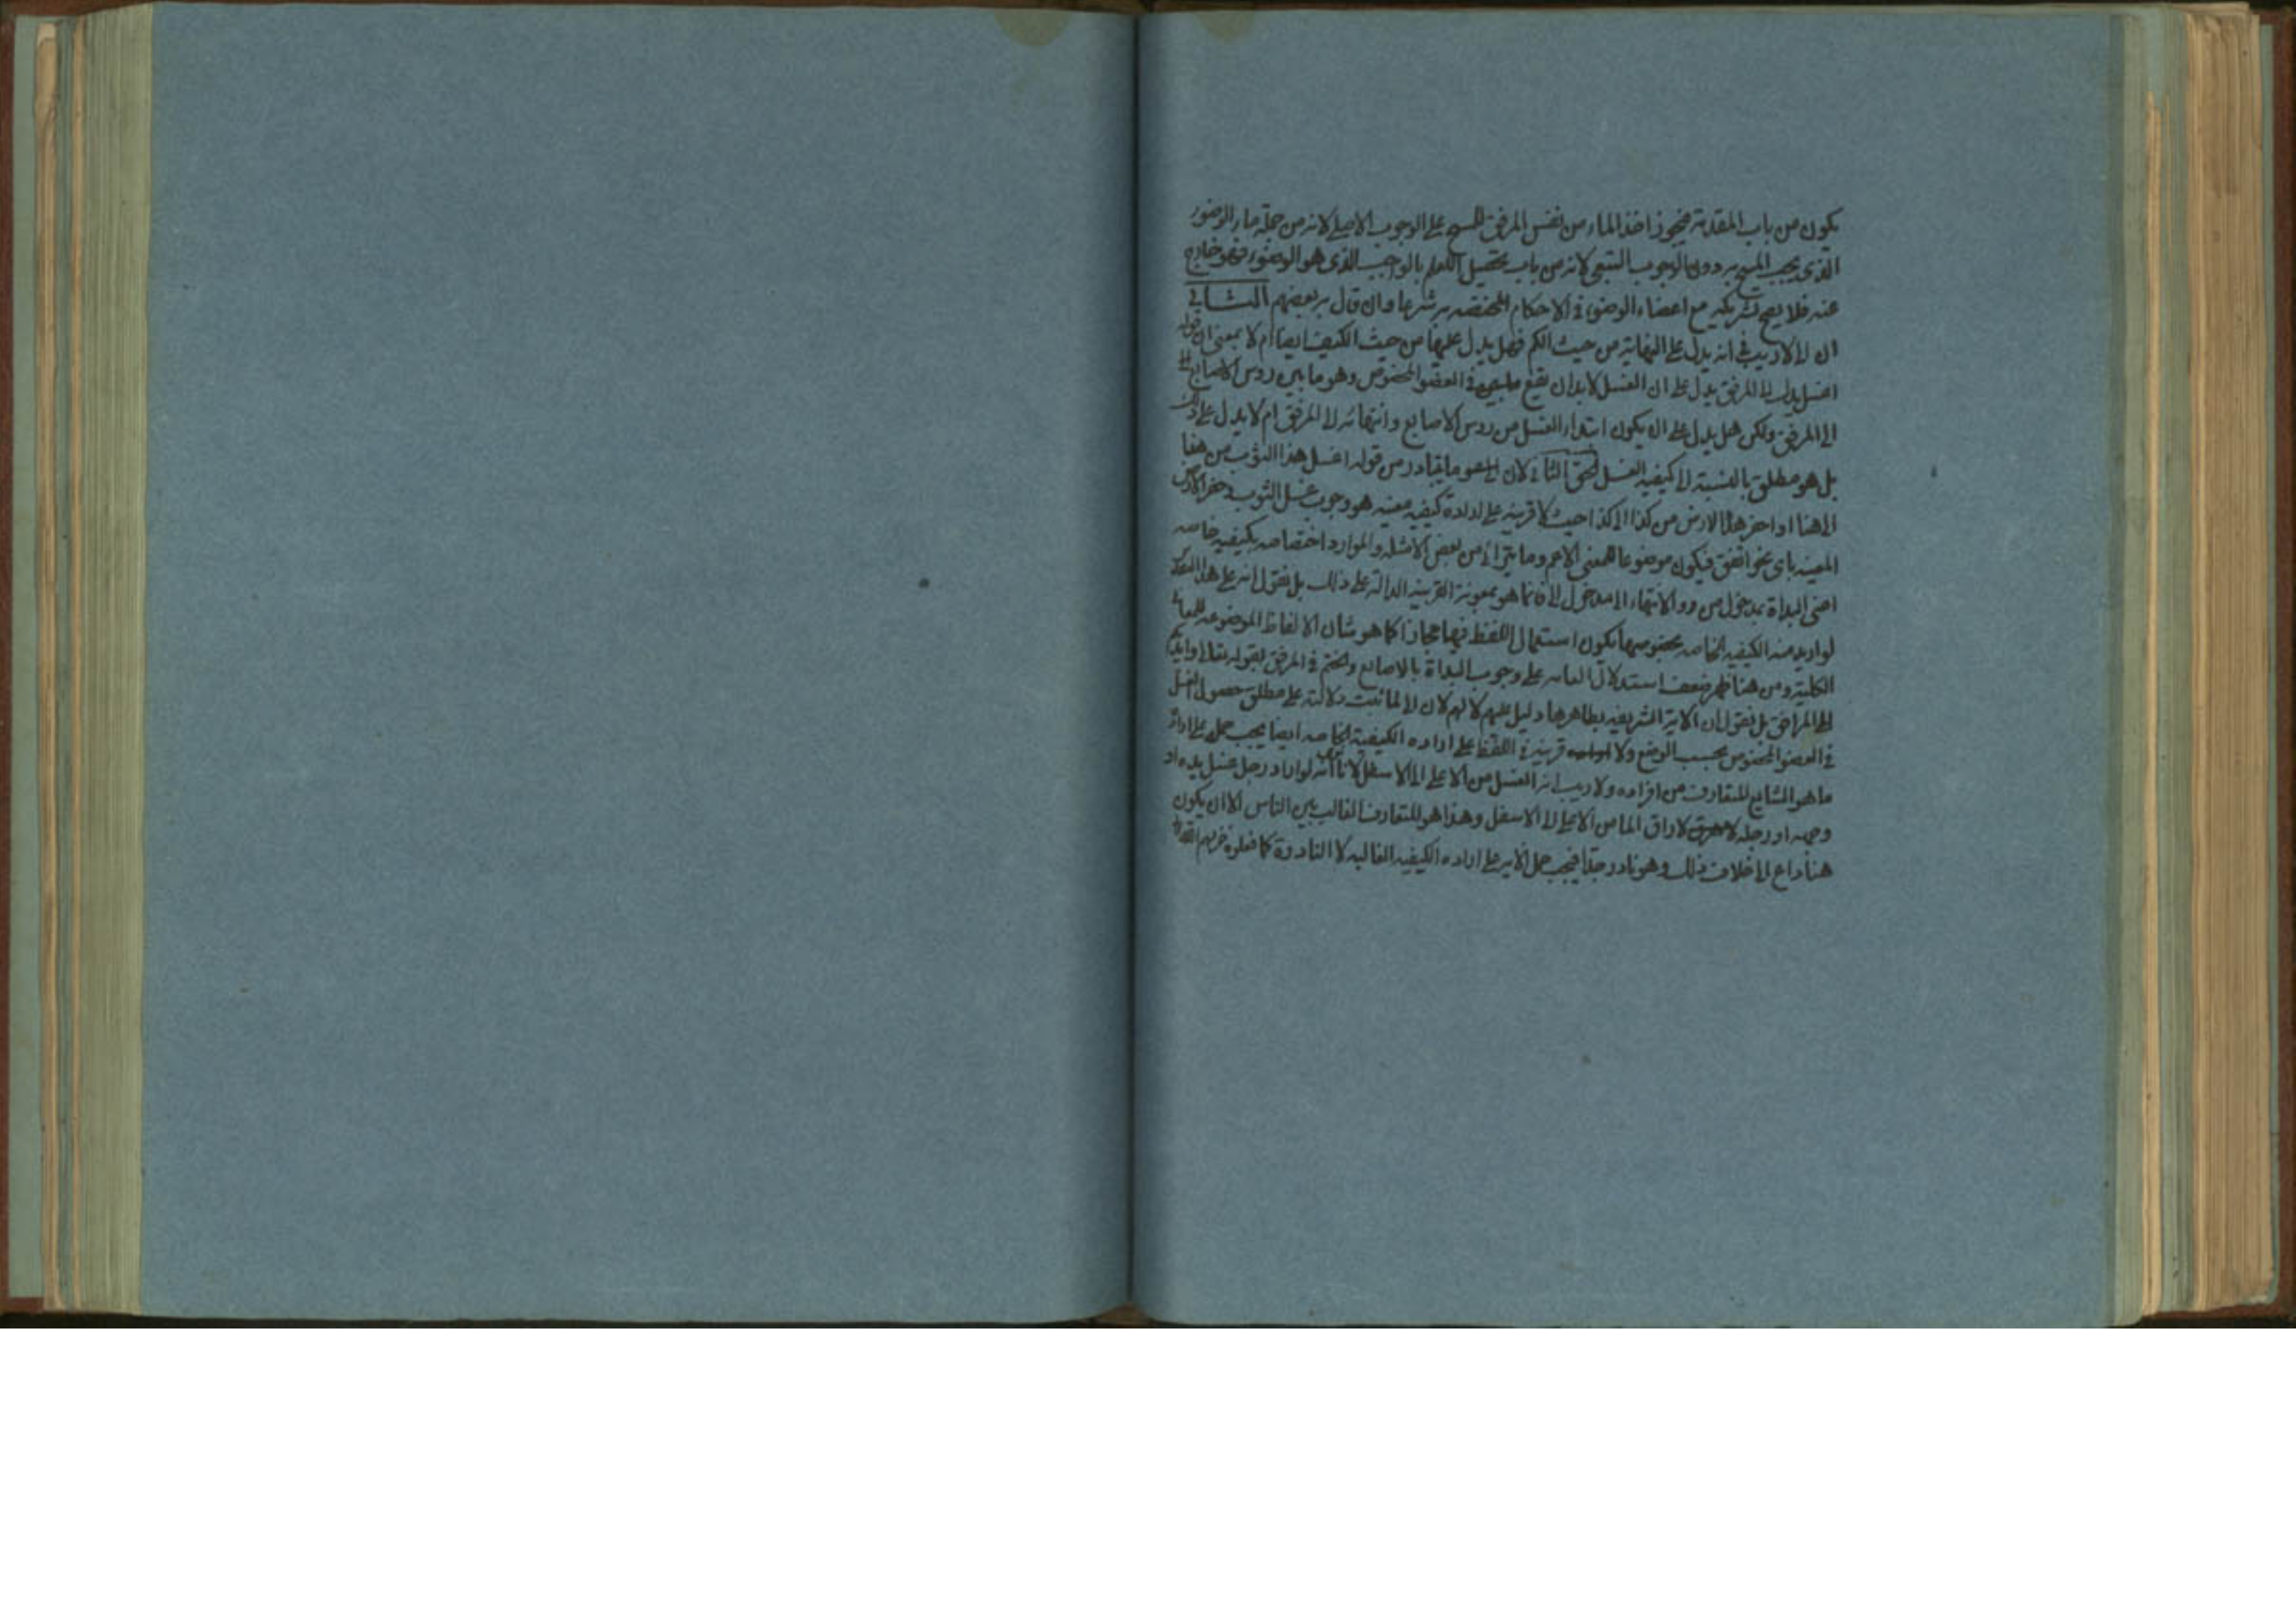 يكون من باب المقدمة فيجوز اخذ الماء من نفس المرفق للمسح على الوجوب الاصلي لانه من جملة ماء الوضوء
الذي يجب المسح به دون الوجوب التبعي لانه من باب تحصيل العلم بالواجب الذي هو الوضوء فهو خارج
عنه فلا يصح تشريكه مع اعضاء الوضوء في الاحكام المختصه به شرعا وان قال به بعضهم الثاني
ان الى لا ريب في انه يدل على النهاية من حيث الكم فهل يدل عليها من حيث الكيف ايضا ام لا بمعنى ان قوله
اغسل يدك الى المرفق يدل على ان الغسل لابد ان يقع في العضو المخصوص وهو ما بين روس الاصابع
الى المرفق ولكن هل يدل على ان يكون ابتداء الغسل من روس الاصابع وانتهائه الى المرفق ام لا يدل على ذلك
بل هو مطلق بالنسبة الى كيفيه الغسل الحق الثاني لان ما يتبادر من قوله اغسل هذا الثوب من هنا
الى هنا او احفر هذا الارض من كذا الى كذا حيث لا قرينه على ارادة كيفيه معينه هو وجوب غسل الثوب وحفر الارض
المعينه باى نحو اتفق فيكون موضوعا للمعنى الاعم وما يترا اى من بعض الامثله والموارد اختصاصه بكيفيه خاصه
اعنى البداة بمدخول من والانتهاء الى مدخول الى فانما هو بمعونة القرينه الدالة على ذلك بل نقول انه على هذا
لو اريد منه الكيفيه الخاصه بخصوصها يكون استعمال اللفظ فيها مجازا كما هو شان الالفاظ الموضوعه للمعانى
الكلية ومن هنا ظهر ضعف استدلال العامه على وجوب البداة بالاصابع والختم في المرفق بقوله تعالى وايديكم
الى المرافق بل نقول ان الاية الشريفه بظاهرها دليل عليهم لا لهم لان الى لما ثبت دلالته على مطلق حصول الغسل
في العضو المخصوص بحسب الوضع ولا قرينه في اللفظ على اراده الكيفية الخاصه ايضا يجب حمله على ارادة
ما هو الشايع المتعارف من افراده ولا ريب انه الغسل من الاعلى الى الاسفل لانا نرى انه لو اراد رجل غسل يده او
وجهه او رجله لاراق الما من الاعلى الى الاسفل وهذا هو المتعارف الغالب بين الناس الا ان يكون
هنا داع الى خلاف ذلك وهو نادر جدا فيجب حمل الاية على اراده الكيفيه الغالبه لا النادرة كما فعلوه خزيهم الله